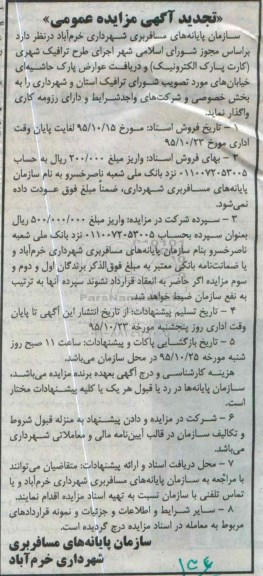 «تجدید آگهی مزایده عمومی»
سازمان پایانه‌های مسافربری شهرداری خرم‌آباد درنظر دارد
براساس مجوز شورای اسلامی شهر اجرای طرح ترافیک شهری
(کارت پارک الکترونیک) و دریافت عوارض پارک حاشیه‌ای
خیابان‌های مورد تصویب شورای ترافیک استان و شهرداری را به
بخش خصوصی و شرکت‌های واجدشرایط و دارای رزومه کاری
واگذار نماید.
۱ - تاریخ فروش اسناد: مورخ ۹۵/۱۰/۱۵ لغایت پایان وقت
اداری مورخ ۹۵/۱۰/۲۳
۲ - بهای فروش اسناد: واریز مبلغ ۲۰۰/۰۰۰ ریال به حساب
۰۱۱۰۰۷۲۰۵۳۰۰۵ نزد بانک ملی شعبه ناصرخسرو به نام سازمان
پایانه‌های مسافربری شهرداری، ضمناً مبلغ فوق عودت داده
نمی‌شود.
۳ - سپرده شرکت در مزایده: واریز مبلغ ۵۰۰/۰۰۰/۰۰۰ ریال
بعنوان سپرده بحساب ۰۱۱۰۰۷۲۰۵۳۰۰۵ نزد بانک ملی شعبه
ناصرخسرو بنام سازمان پایانه‌های مسافربری شهرداری خرم‌آباد و
یا ضمانت‌نامه بانکی معتبر به مبلغ فوق‌الذکر برندگان اول و دوم و
سوم مزایده اگر حاضر به انعقاد قرارداد نشوند سپرده آنها به ترتیب
به نفع سازمان ضبط خواهد شد.
۴ - تاریخ تسلیم پیشنهادات: از تاریخ انتشار این آگهی تا پایان
وقت اداری روز پنجشنبه مورخه ۹۵/۱۰/۲۳
۵ - تاریخ بازگشایی پاکات و پیشنهادات: ساعت ۱۱ صبح روز
شنبه مورخه ۹۵/۱۰/۲۵ در محل سازمان می‌باشد.
هزینه کارشناسی و درج آگهی بعهده برنده مزایده می‌باشد،
سازمان پایانه‌ها در رد یا قبول هر یک یا کلیه پیشنهادات مختار
است.
۶ - شرکت در مزایده و دادن پیشنهاد به منزله قبول شروط
و تکالیف سازمان در قالب آیین‌نامه مالی و معاملاتی شهرداری
می‌باشد.
۷ - محل دریافت اسناد و ارائه پیشنهادات: متقاضیان می‌توانند
با مراجعه به سازمان پایانه‌های مسافربری شهرداری خرم‌آباد و یا
تماس تلفنی با سازمان نسبت به تهیه اسناد مزایده اقدام نمایند.
۸ - سایر شرایط و اطلاعات و جزئیات و نمونه قراردادهای
مربوط به معامله در اسناد مزایده درج گردیده است.
سازمان پایانه‌های مسافربری
شهرداری خرم‌آباد